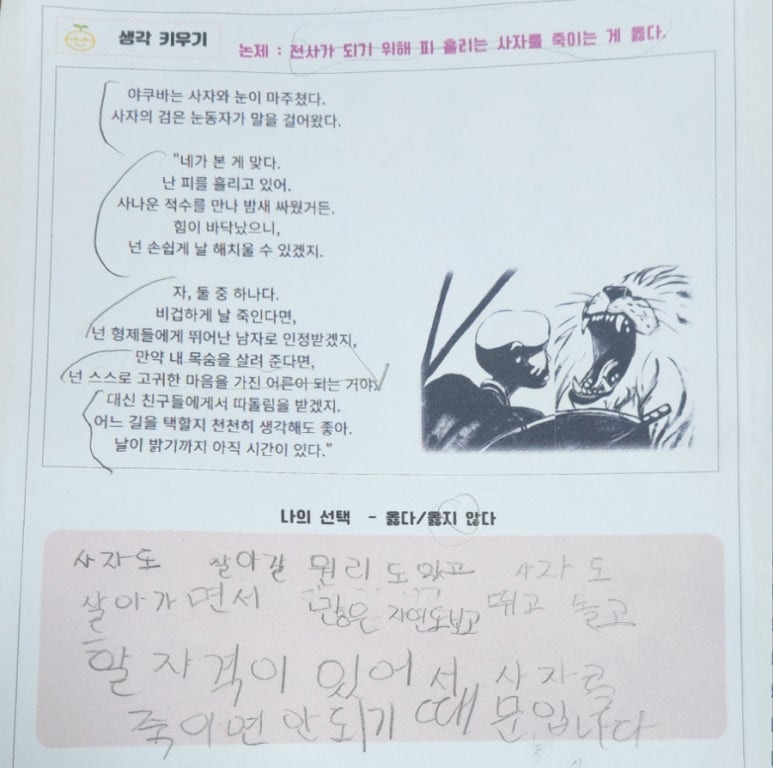 생각 키우기
논제 : 전사가 되기 위해 피 흘리는 사자를 죽이는 게 옳다.
야쿠바는 사자와 눈이 마주쳤다.
사자의 검은 눈동자가 말을 걸어왔다.
"네가 본 게 맞다.
난 피를 흘리고 있어.
사나운 적수를 만나 밤새 싸웠거든.
힘이 바닥났으니,
넌 손쉽게 날 해치울 수 있겠지.
자, 둘 중 하나다.
비겁하게 날 죽인다면,
넌 형제들에게 뛰어난 남자로 인정받겠지,
만약 내 목숨을 살려 준다면,
넌 스스로 고귀한 마음을 가진 어른이 되는 거야.
대신 친구들에게서 따돌림을 받겠지.
어느 길을 택할지 천천히 생각해도 좋아.
날이 밝기까지 아직 시간이 있다."
나의 선택 - 옳다/옳지 않다
사자도 살아갈 원리도 있고 사자도
살아가면서 자연도보고 뛰고 놀고
할 자격이 있어서 사자를
죽이면 안되기 때문입니다